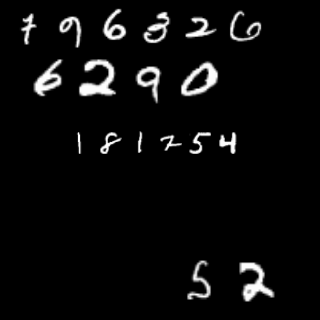 796326
6290
181754
52